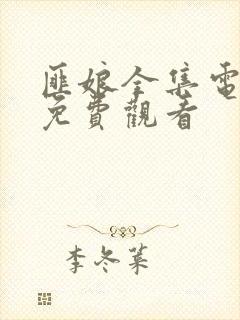 匪娘全集電
免費觀看
李冬菜